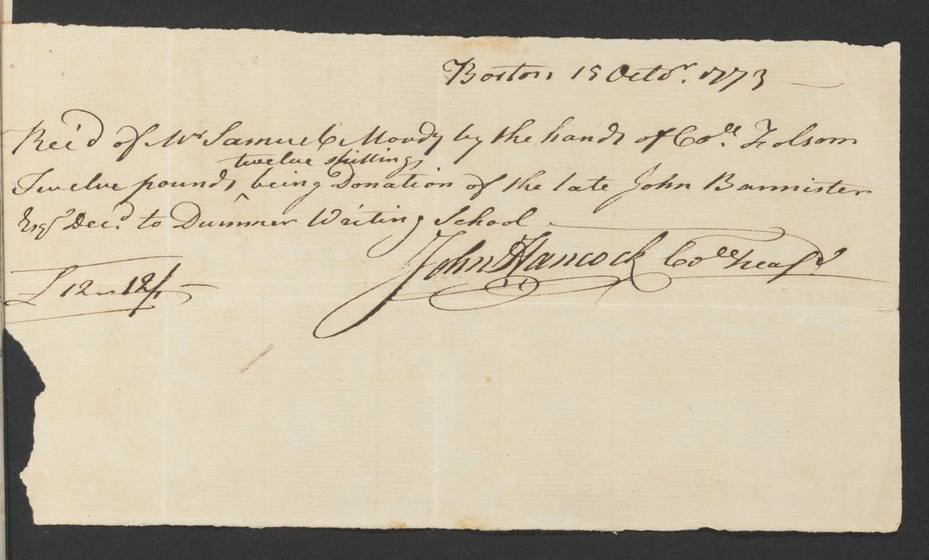 Boston 15 Octor. 1773
Rec'd of Mr Samuel Moody by the hands of Coll. Folsom
twelve shillings
Twelve pounds ^ being Donation of the late John Bannister
Esqr Decd. to Dummer Writing School
John Hancock Coll Treasr
£12 " 12/